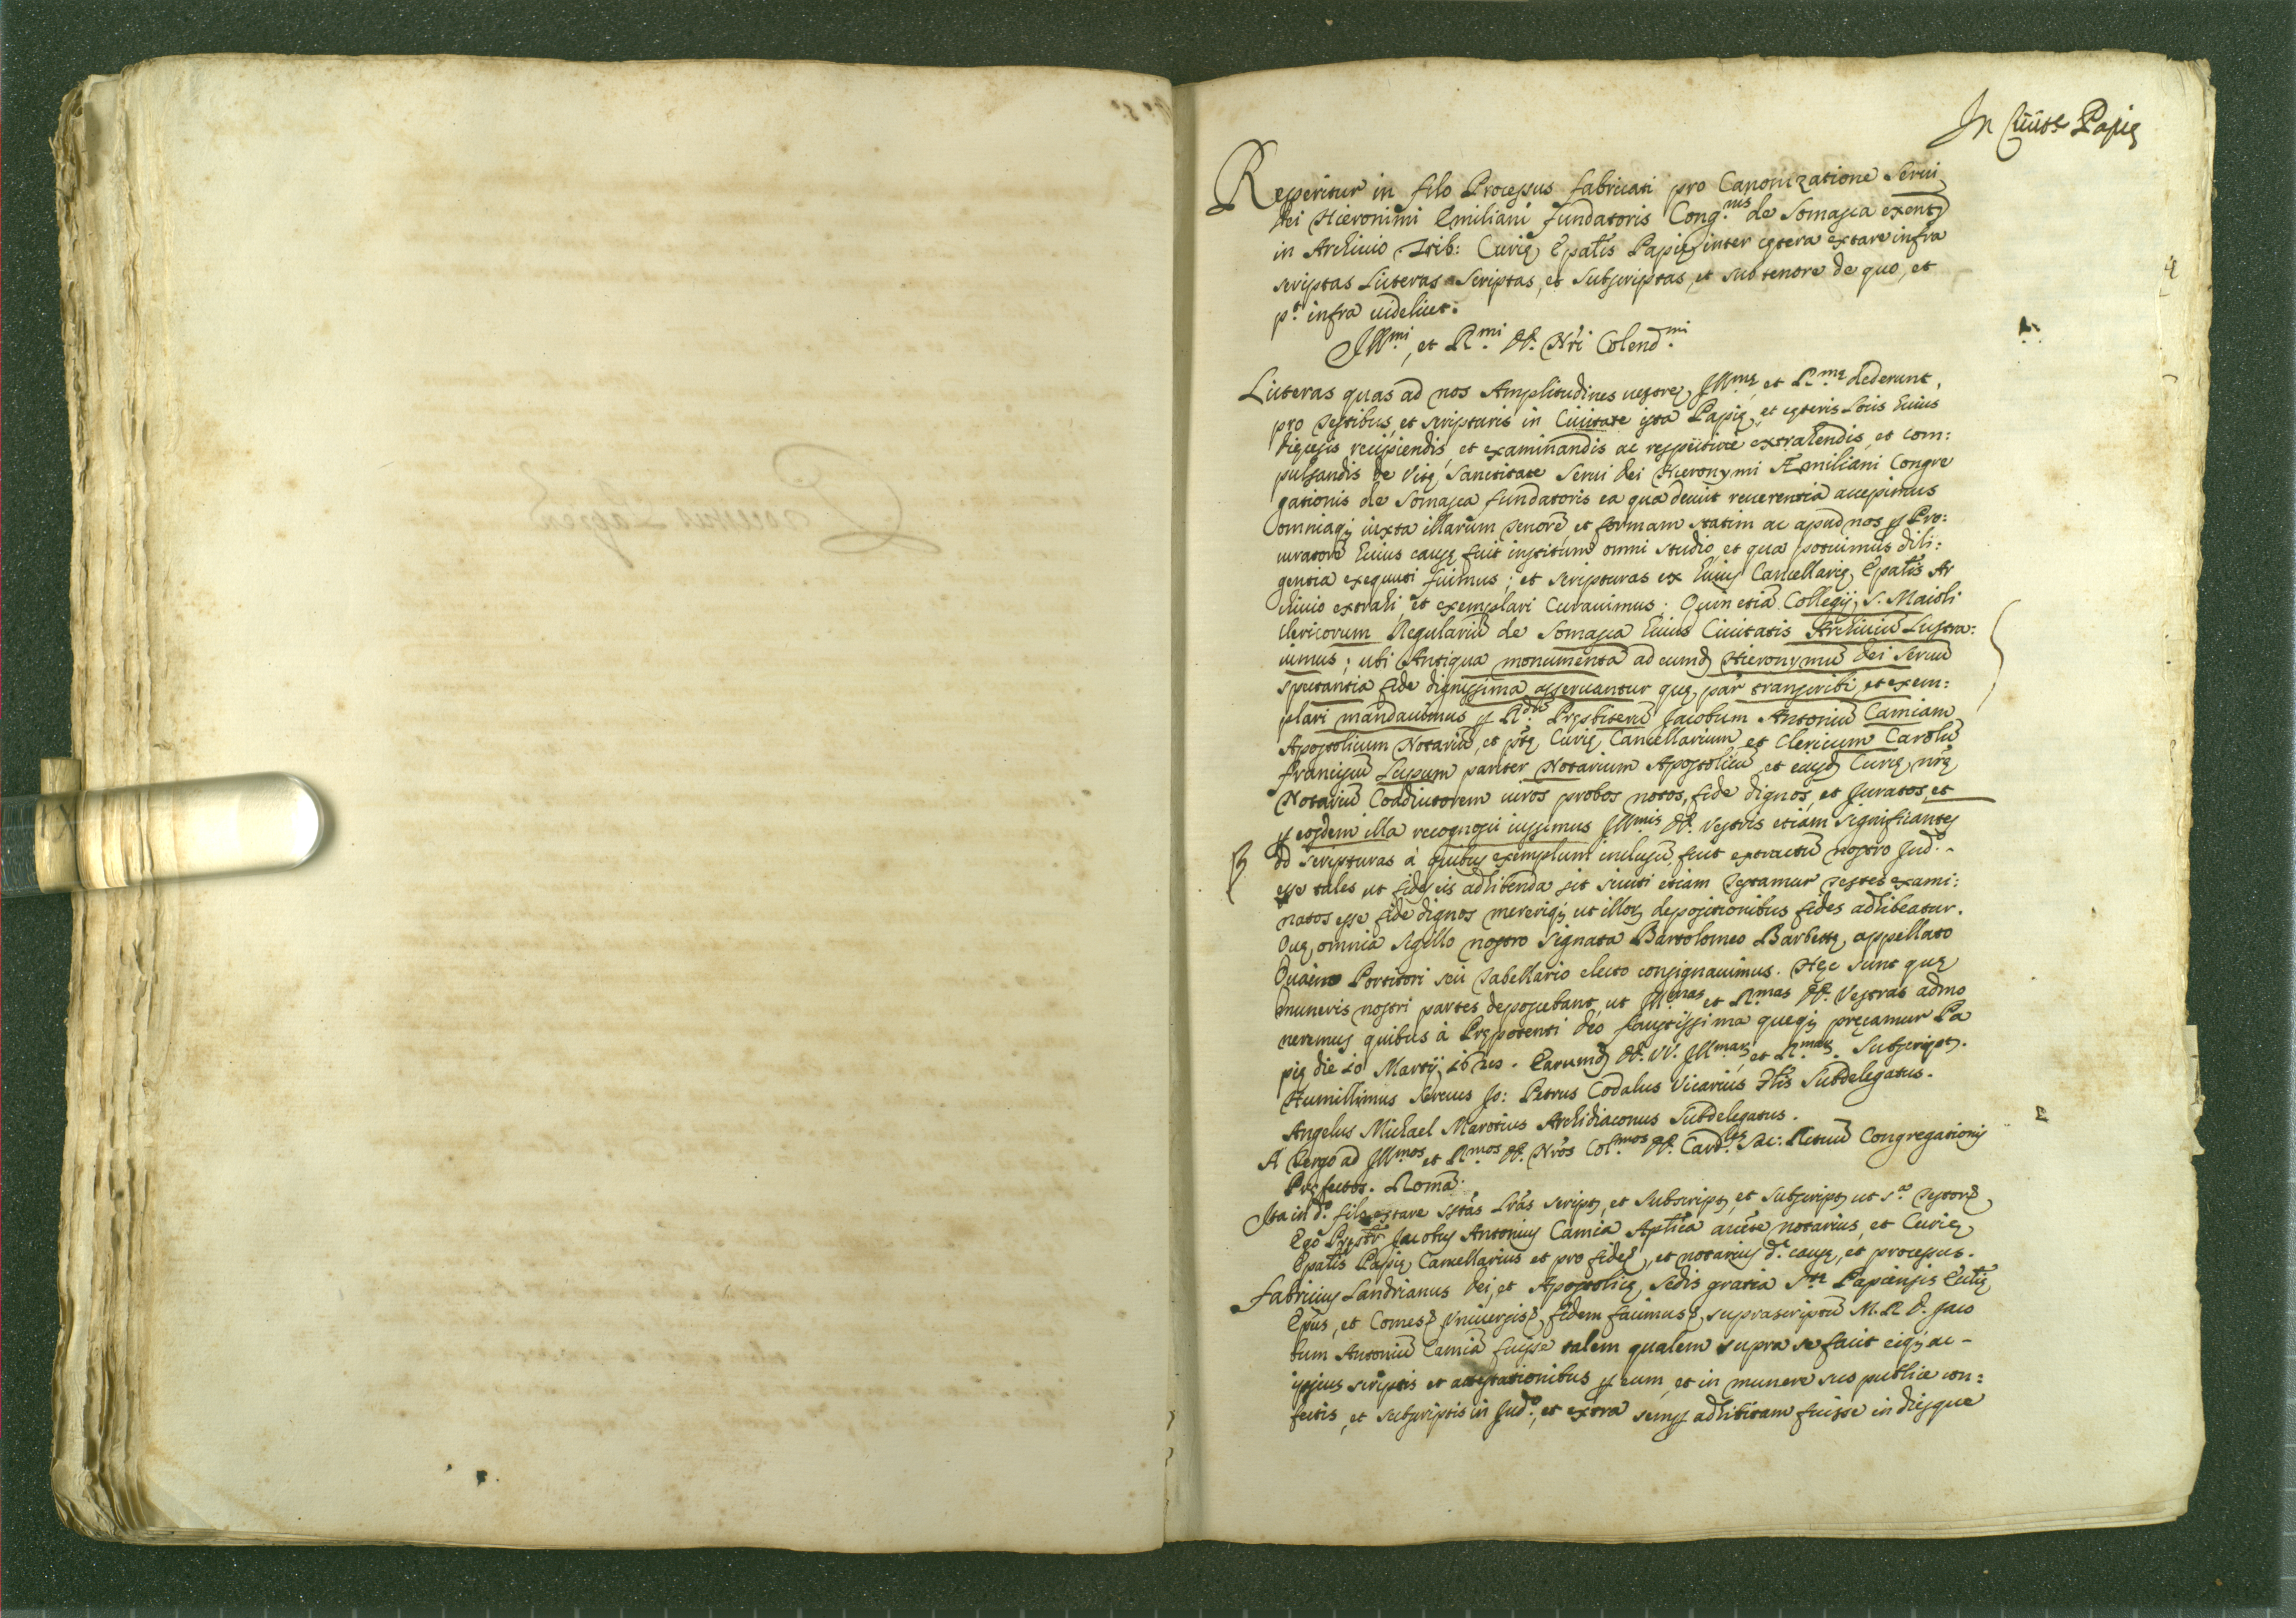 In Ciuit.e Papię
Reperitur in filo Processus fabricati pro Canonizatione Serui
Dei Hieronimi Emiliani fundatoris Cong.nis de Somasca
in Archiuio Trib: Curię Epalis Papię inter cętera extare infra
scriptas Literas Scriptas, et Subscriptas, et sub tenore de quo, et
p.t infra uidelicet.
Ill.mi, et R.mi DD. Nri Colend.mi
Literas quas ad nos Amplitudines uestrę Ill.mę et R.mę dederunt,
pro testibus, et scripturis in Ciuitate ista Papię, et cęteris Locis huius
dięcesis recipiendis, et examinandis ac respectiue extrahendis, et com:
pulsandis de Vitę Sanctitate Serui Dei Hieronymi Æmiliani Congre
gationis de Somasca fundatoris ea qua decuit reuerentia accepimus
omniaq; iuxta illarum tenorē, et formam statim ac apud nos p Pro:
curatorē huius causę fuit institum omni studio, et qua potuimus dili:
gentia exequuti fuimus; et scripturas ex huius Cancellarię Epalis Ar
chiuio extrahi, et exemplari Curauimus; Quin etiā Collegij S. Maioli
Clericorum Regulariū de Somasca huius Ciuitatis Archiuiū Lustra:
uimus; ubi Antiqua monumenta ad eumd Hieronymū Dei Seruū
spectantia fide dignissima asseruantur quę, par transcribi, et exem:
plari mandauimus p R.dū Pręsbiterū Jacobum Antoniū Camiam
Apostolicum Notariū, et Curię Cancellarium et Clericum Carolū
Franciscū Lupum pariter Notarium Apostolicū et eiusd Curię nrę
Notariū Coadiutorem uiros probos notos, fide dignos, et Juratos, et
p eosdem illa recognosci iussimus Ill.mis DD. Vestris etiam significantes
Scripturas à quibus exemplum inclusū fuit extractū nostro Jud.o
esse tales ut fides eis adhibenda sit sicuti etiam testamur testes exami:
natos esse fide dignos mererique ut illor depositionibus fides adhibeatur.
Quę omnia sigillo nostro Signata Bartolomeo Barbettę appellato
Portitori seu tabellario electo consignauimus. Hęc sunt quę
muneris nostri partes deposcebant, ut Ill.mas et R.mas DD. Vestras admo
neremus quibus à Prępotenti Deo faustissima queq; pręcamur Pa
pię die 10 Martij Earumd DD. VV. Ill.mar et R.mar. Subscript.
Humillimus Seruus Jo: Petrus Codalus Vicarius Glis Subdelegatus.
Angelus Michael Marotius Archidiaconus Subdelegatus.
A tergo ad Ill.mos et R.mos DD. Nros Col.mos DD. Card.les Sac: Rituū Congregationis
Pręfectos. Romā.
Ita in d.o filo extare Lras script, et Subscript, et subscript, ut s.a
Ego Pręsbr Jacobus Antonius Camia Aplica aucte notarius, et Curię
Epalis Papię Cancellarius et pro fide, et notarius d.ę causę, et processus.
Fabricius Landrianus Dei, et Apostolicę Sedis gratia S.tę Papiensis Ecclię
Epus, et Comes Vniuersis fidem facimus suprascriptū M. R. D. Jaco
bum Antoniū Camiā fuisse talem qualem supra se facit eiq; ac
ipsius scriptis et attestationibus p eum, et in munere suo publice con:
fectis, et subscriptis in Jud.o, et extra semp adhibitam fuisse in diesque